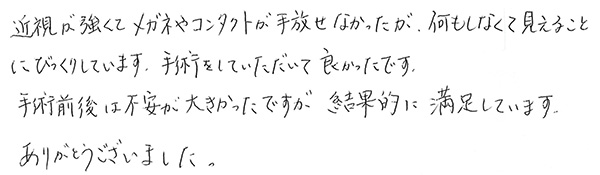 近視が強くてメガネやコンタクトが手放せなかったが、何もしなくて見えること
にびっくりしています。手術をしていただいて良かったです。
手術前後は不安が大きかったですが 結果的に満足しています。
ありがとうございました。